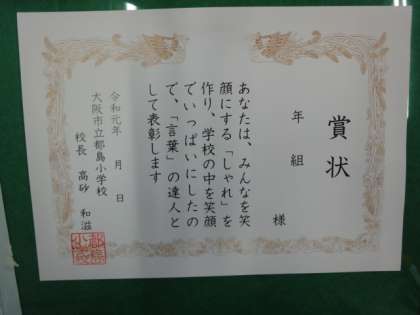 賞状
年 組 様
あなたは、みんなを笑
顔にする「しゃれ」を
作り、学校の中を笑顔
でいっぱいにしたの
で、「言葉」の達人と
して表彰します
令和元年 月 日
大阪市立都島小学校
校長 高砂 和滋